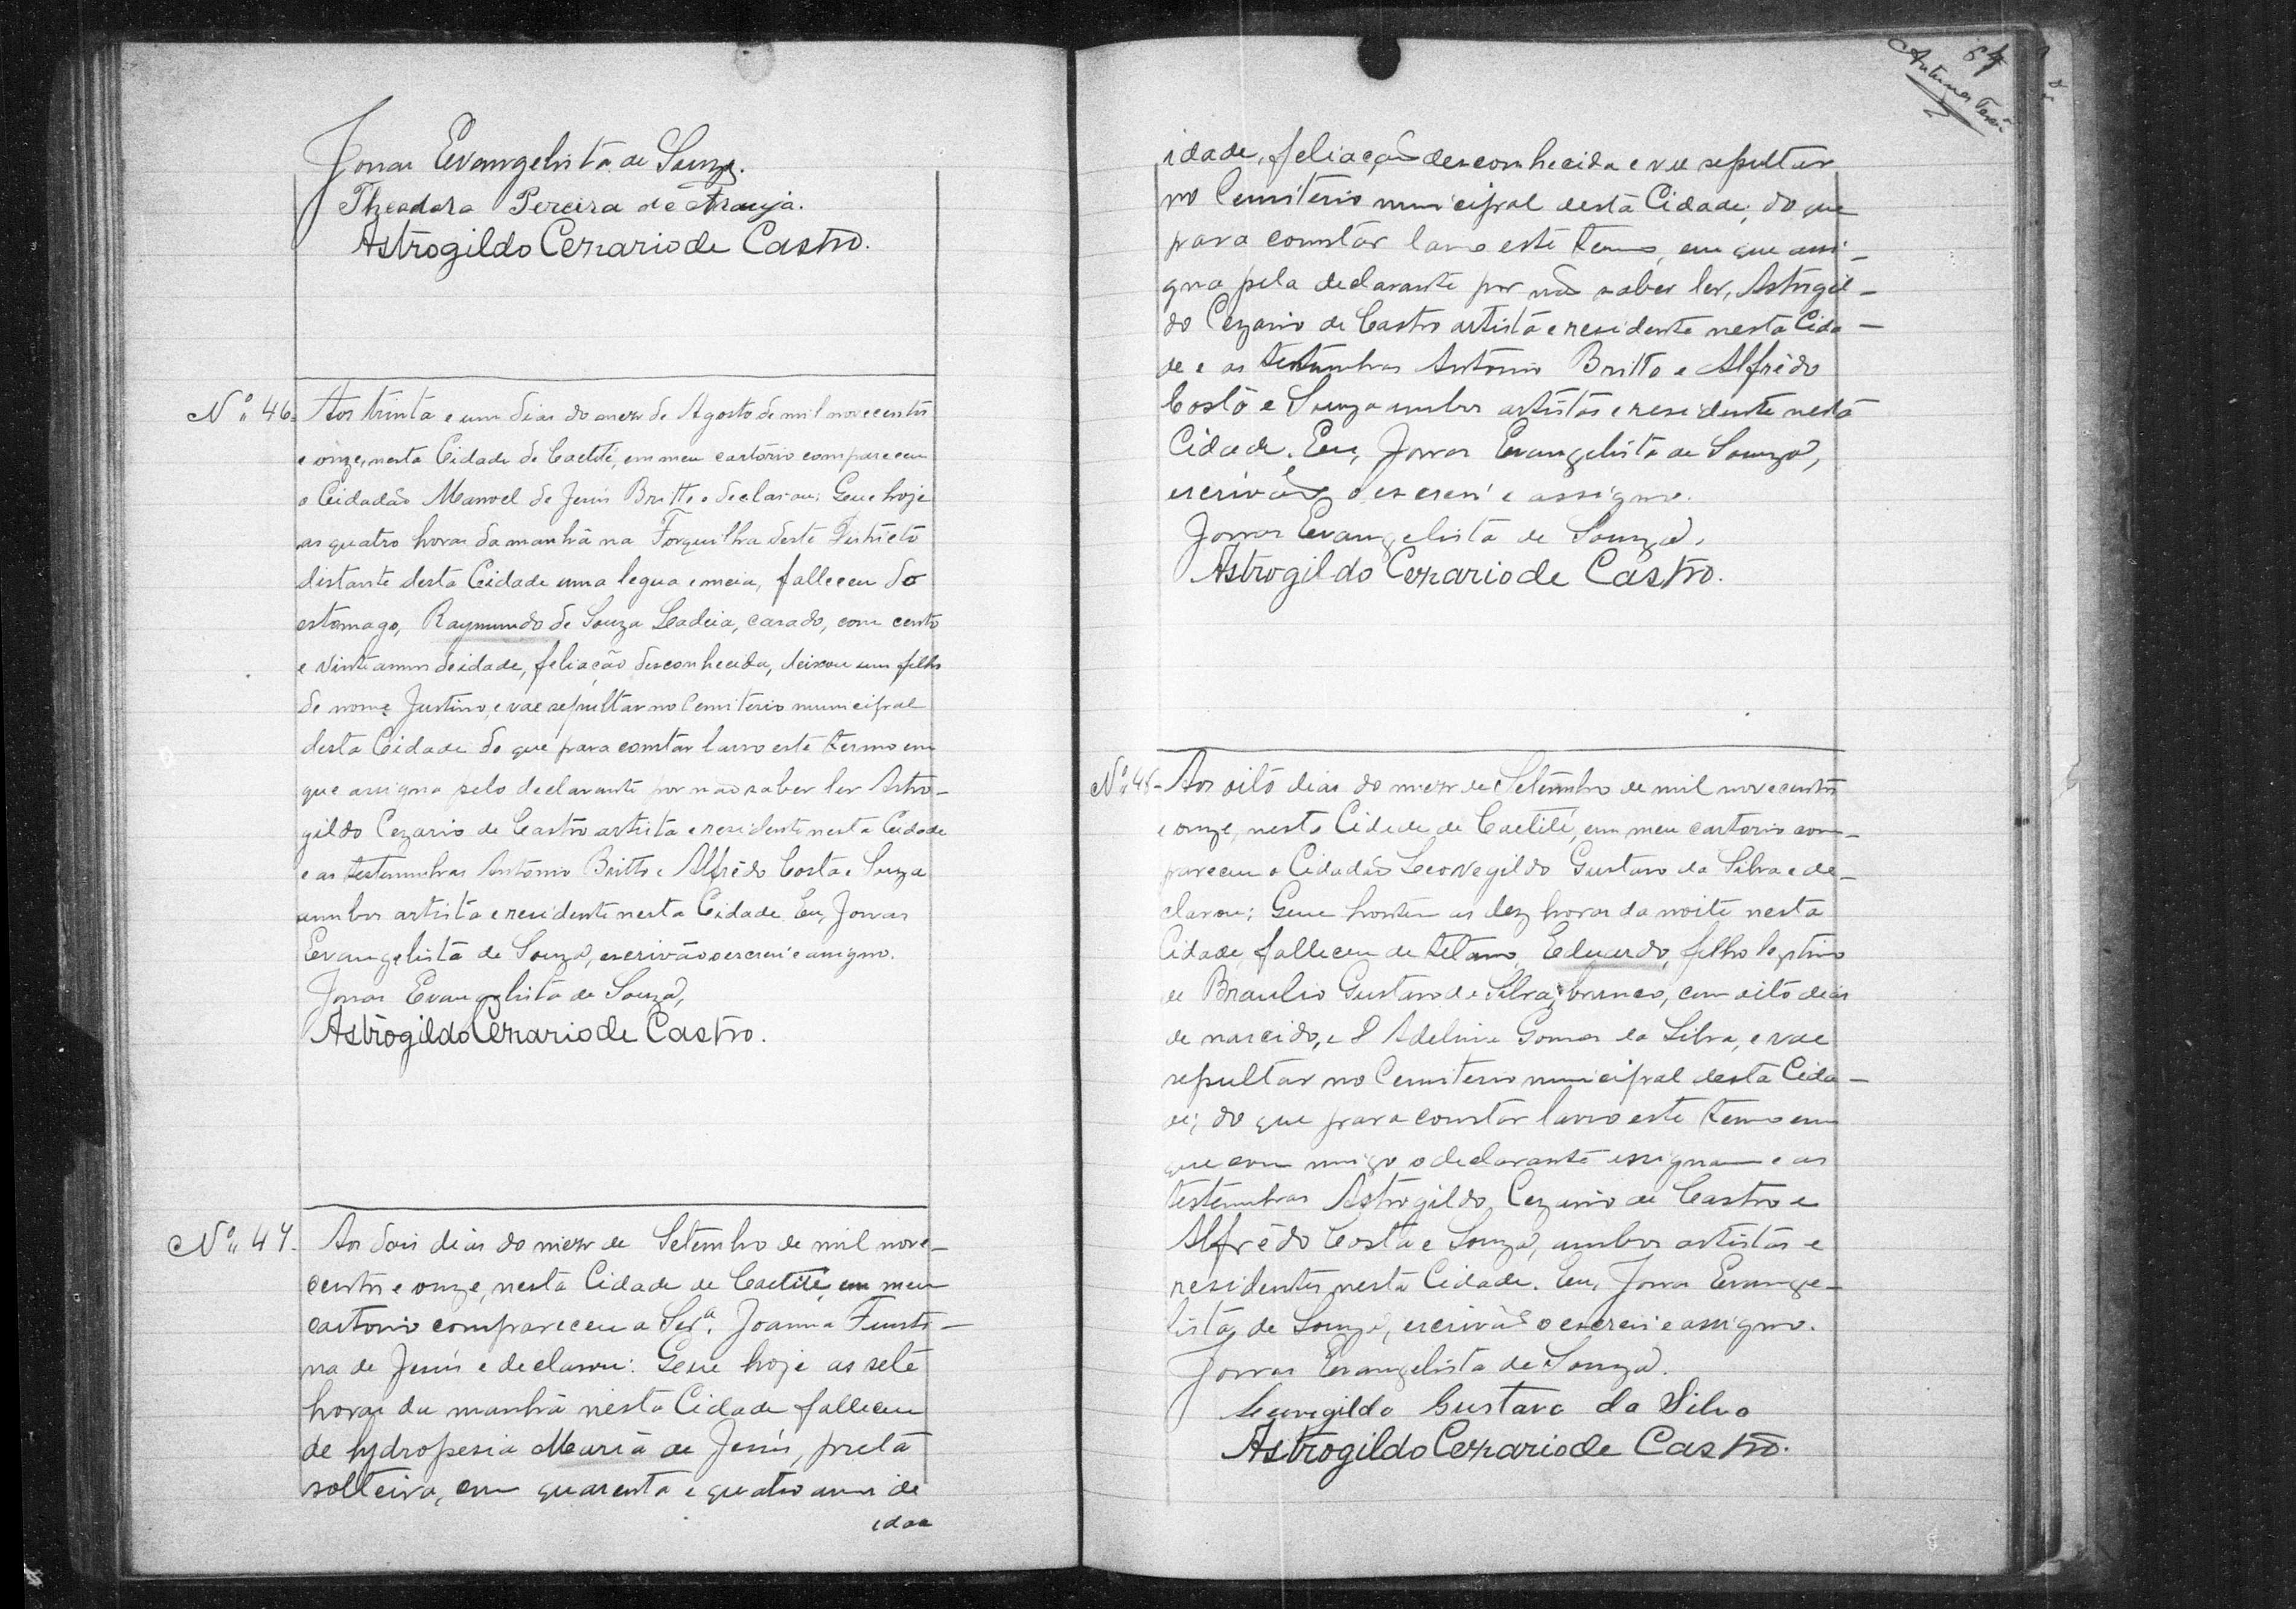 Jonas Evangelista de Souza.
Theodora Pereira de Araujo.
Astrogildo Cezario de Castro.
Nº 46. Aos trinta e um dias do mez de Agosto de mil novecentos
e onze, nesta Cidade de Caetité, em meu cartorio compareceu
o Cidadão Manoel de Jesus Britto e declarou: Que hoje
as quatro horas da manhã na Forquilha deste Districto
distante desta Cidade uma legua e meia, falleceu do
estomago, Raymundo de Souza Ladeia, casado, com cento
e vinte annos de idade, feliação desconhecida, deixou um filho
de nome Justino, e vae sepultar no Cemiterio municipal
desta Cidade do que para constar lavro este termo em
que assigna pelo declarante por não saber ler Astro-
gildo Cezario de Castro artista e residente nesta Cidade
e as testemunhas Antonio Britto e Alfrêdo Costa e Souza
ambos artista e residente nesta Cidade. Eu, Jonas
Evangelista de Souza, escrivão o escrevi e assigno.
Jonas Evangelista de Souza,
Astrogildo Cezario de Castro.
Nº 47. Aos dois dias do mez de Setembro de mil nove-
centos e onze, nesta Cidade de Caetité, em meu
cartorio compareceu a Serª. Joanna Fausti-
na de Jesus e declarou: Que hoje as sete
horas da manhã nesta Cidade falleceu
de hydropesia Maria de Jesus, preta
solteira, com quarenta e quatro annos de
idade
64
idade, feliação desconhecida e vae sepultar
no Cemiterio municipal desta Cidade; do que
para constar lavro este termo, em que assi-
gna pela declarante por não saber ler, Astrogil-
do Cezario de Castro artista e residente nesta Cida-
de e as testemunhas Antonio Britto e Alfrêdo
Costa e Souza ambos artistas e residente nesta
Cidade. Eu, Jonas Evangelista de Souza,
escrivão o escrevi e assigno.
Jonas Evangelista de Souza,
Astrogildo Cezario de Castro.
Nº 48- Aos oito dias do mez de Setembro de mil novecentos
e onze, nesta Cidade de Caetité, em meu cartorio com-
pareceu o Cidadão Leovegildo Gustavo da Silva e de-
clarou: Que hontem as dez horas da noite nesta
Cidade, falleceu de tetano, Eduardo, filho legitimo
de Braulio Gustavo da Silva, branco, com oito dias
de nascido, e D Adelina Gomes da Silva, e vae
sepultar no Cemiterio municipal desta Cida-
de; do que para constar lavro este termo em
que com migo o declarante assignam e as
testemunhas Astrogildo Cezario de Castro e
Alfrêdo Costa e Souza, ambos artistas e
residentes nesta Cidade. Eu, Jonas Evange-
lista de Souza, escrivão o escrevi e assigno.
Jonas Evangelista de Souza.
Leovegildo Gustavo da Silva
Astrogildo Cezario de Castro.